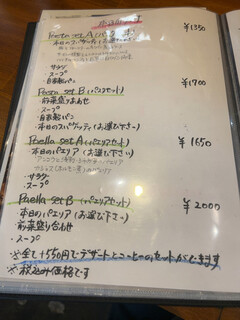 Pasta set A (パスタセット) ¥1350
・本日のスパゲッティ(お選び下さい)
・サラダ
・スープ
・自家製パン
Pasta set B (パスタセット) ¥1700
・前菜盛り合わせ
・スープ
・自家製パン
・本日のスパゲッティ(お選び下さい)
Paella set A (パエリアセット) ¥1650
・本日のパエリア(お選び下さい)
・サラダ
・スープ
Paella set B (パエリアセット) ¥2000
・本日のパエリア(お選び下さい)
・前菜盛り合わせ
・スープ
※全て+550円でデザートとコーヒーのセットができます
※税込み価格です